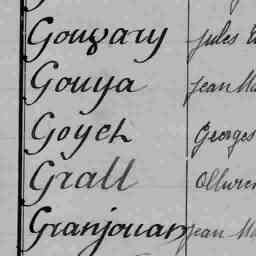 Gouzary Jules
Gouya Jean Ma
Goych Georges
Grall
Granjouan Jean Ma